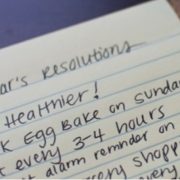 ar's Resolutions
Healthier!
k Egg Bake on Sunda
t every 3-4 hours
t alarm reminder on
very shopp